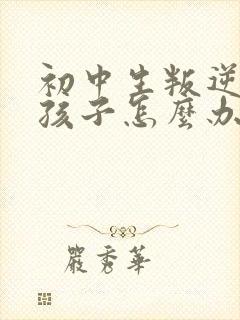 初中生叛逆
孩子怎麼办
嚴秀華